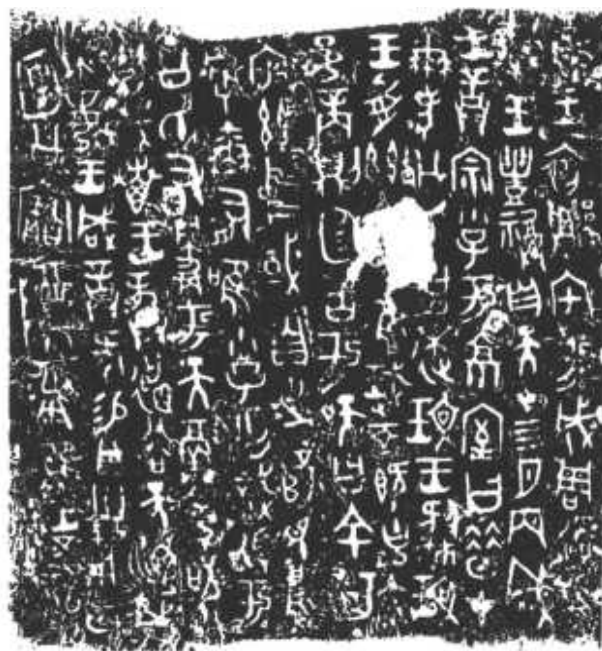 唯王初遷宅于成周復爯
珷王豊祼自天在四月丙戌
王誥宗小子于京室曰昔在
爾考公氏克逨玟王肆玟
王受茲唯珷王既克大
邑商則廷告于天曰余其
宅茲中國自之乂民烏
虖爾有唯小子亡識視于
公氏有爵于天徹令敬
享哉唯王恭德裕天訓我
不敏王咸誥何賜貝卅朋用作
庾公寶尊彝唯王五祀